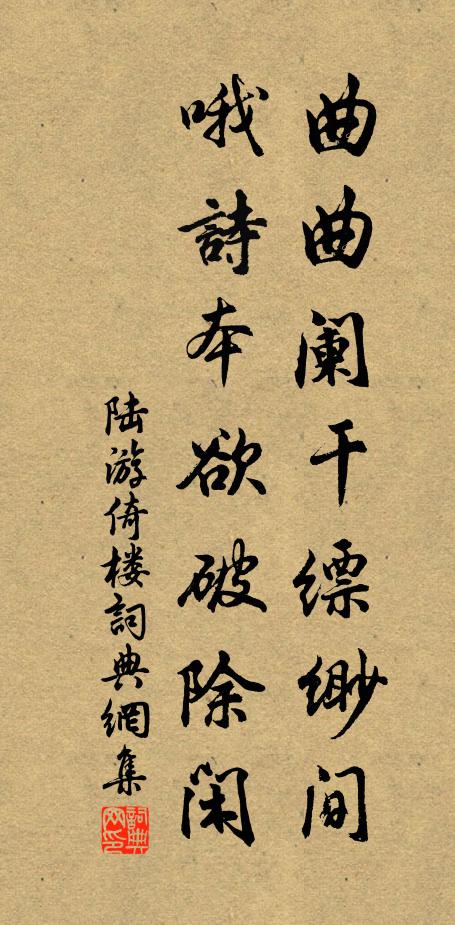 曲曲阑干缥缈间
哦詩本欲破除闲
陆游倚楼詞典網集
詞典网印